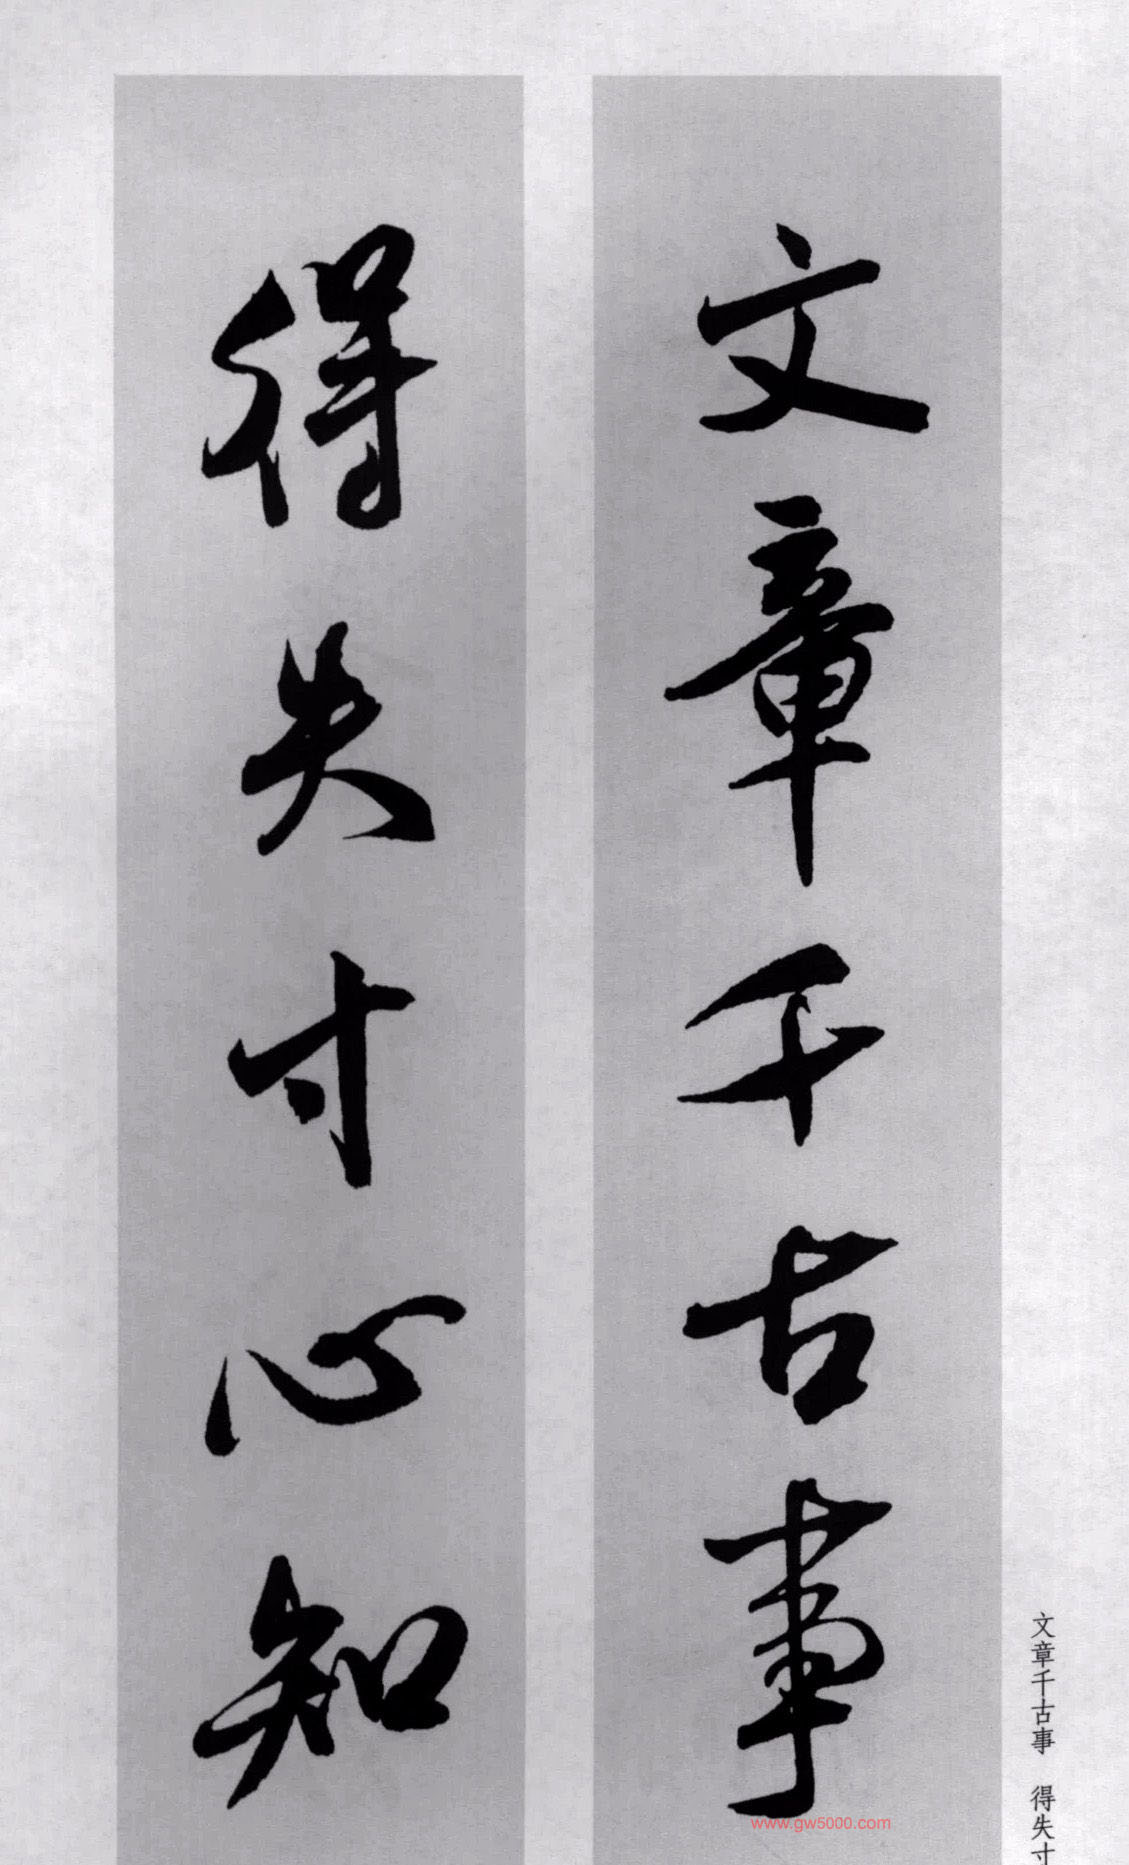 文章千古事
得失寸心知
文章千古事 得失寸
www.gw5000.com